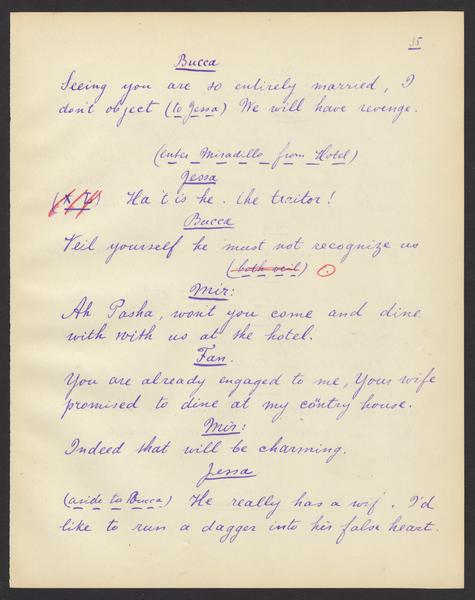 35
Bucca
Seeing you are so entirely married, I
don't object (to Jessa) We will have revenge.
(enter Miradillo from Hotel)
Jessa
Ha 't is he. the traitor!
Bucca
Veil yourself he must not recognize us
(both veil)
Mir:
Ah Pasha, won't you come and dine
with with us at the hotel.
Fan.
You are already engaged to me, Your wife
promised to dine at my contry house.
Mir:
Indeed that will be charming.
Jessa
(aside to Bucca) He really has a wif. I'd
like to run a dagger into his false heart.